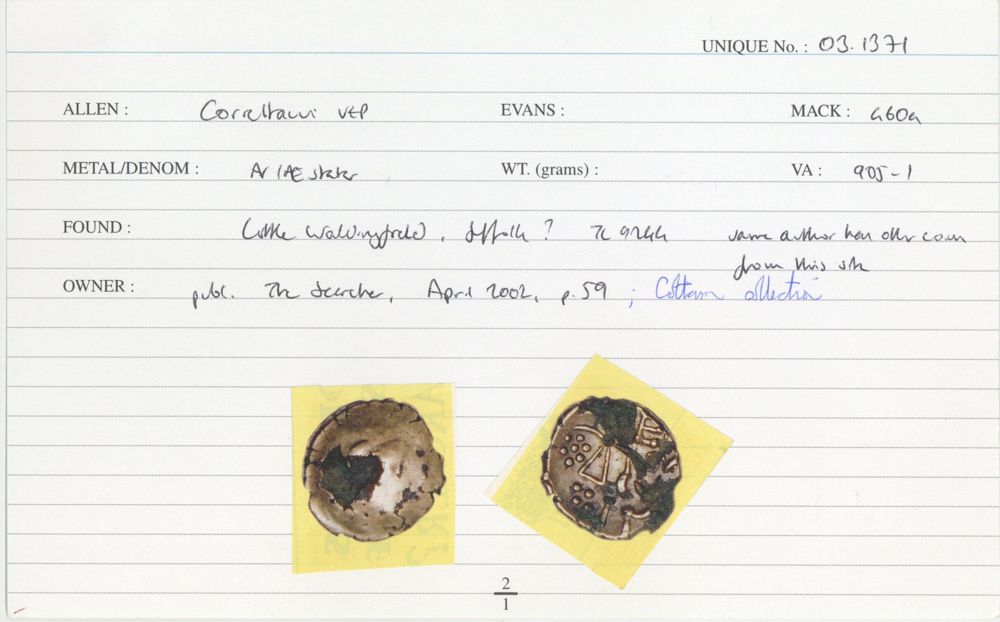 UNIQUE No. : 03.1371
ALLEN : Correltauvi VEP EVANS : MACK : 460a
METAL/DENOM : Ar/AE stater WT. (grams) : VA : 905-1
FOUND : Little Waldingfield, Suffolk? TL 9244 same author has other coin
from this site
OWNER : publ. The Searcher, April 2002, p.59 ; Cottam collection
2
1